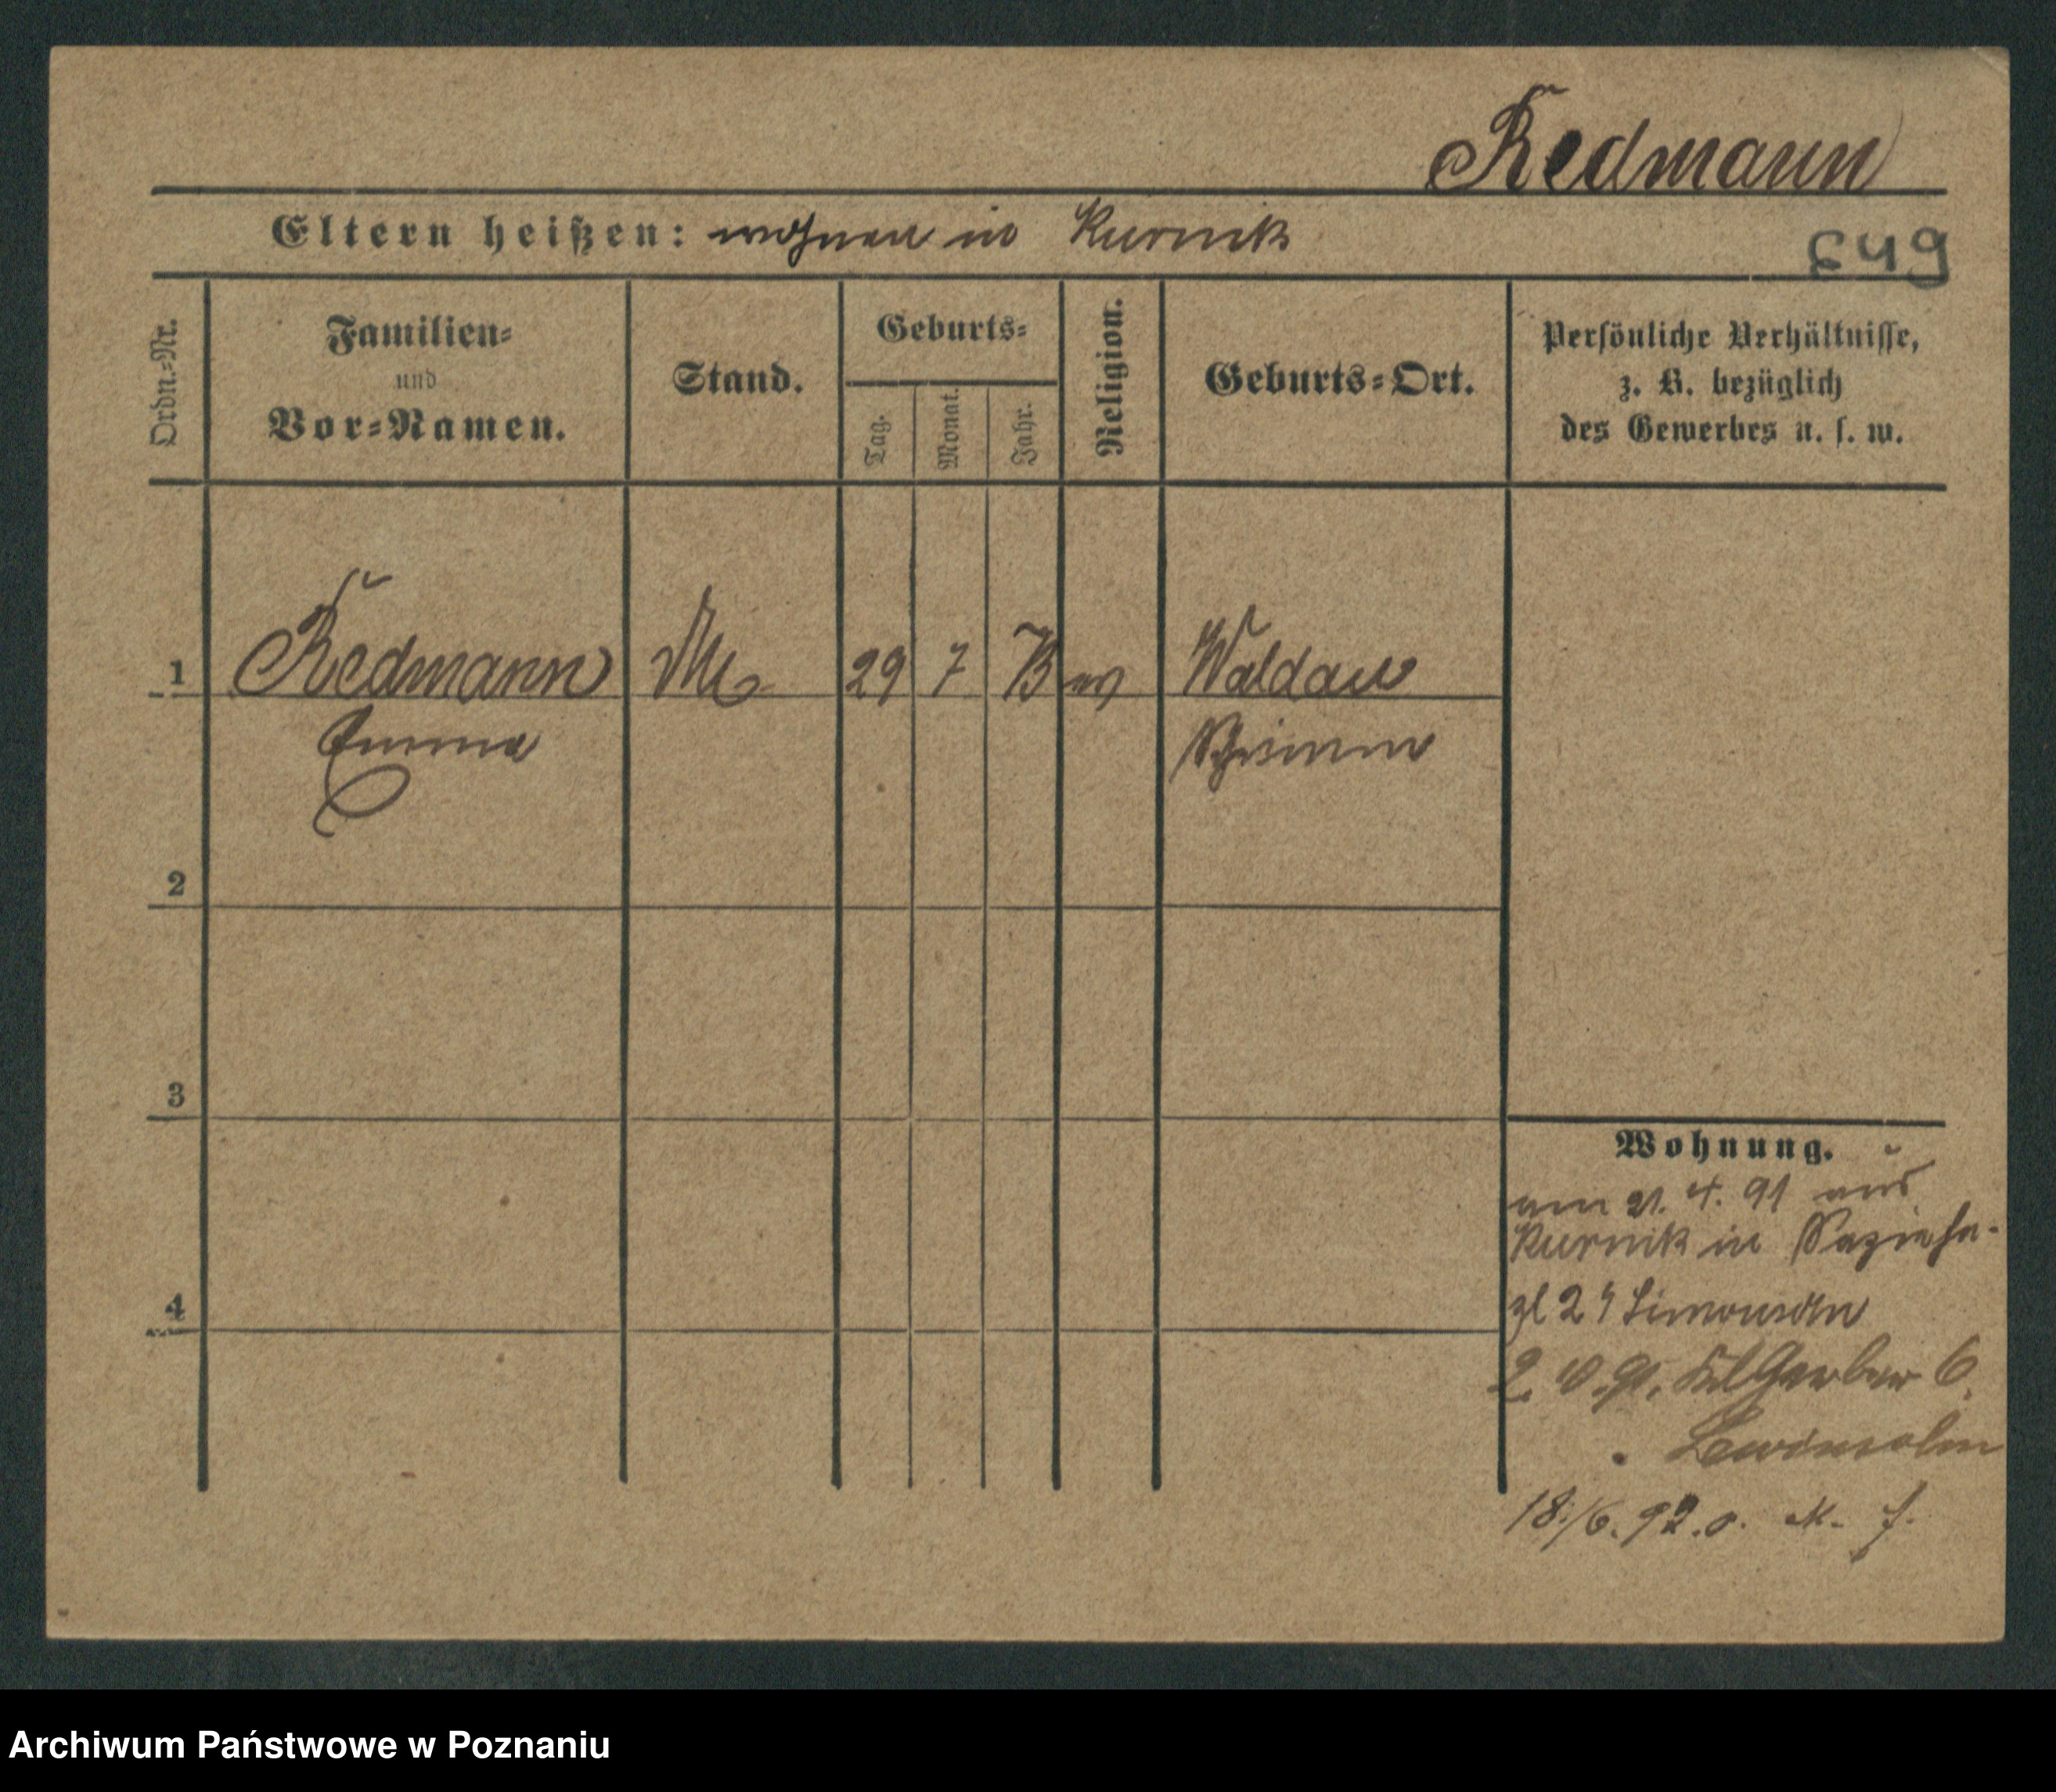 Redmann
Eltern heißen: wohnen in Kurnik
649
Ordn.=Nr.
Familien=
und
Vor=Namen.
Stand.
Geburts=
Tag.
Monat.
Jahr.
Religion.
Geburts=Ort.
Persönliche Verhältnisse,
z. B. bezüglich
des Gewerbes u. s. w.
1 Redmann 29 7 73 ev Waldau
Emma Schrimm
2
3
4
Wohnung.
am 21. 4. 91 aus
Kurnik in
24 Simonsohn
2. 91. Gerber 6.
Lewinsohn
18./6. 92. o.
Archiwum Państwowe w Poznaniu